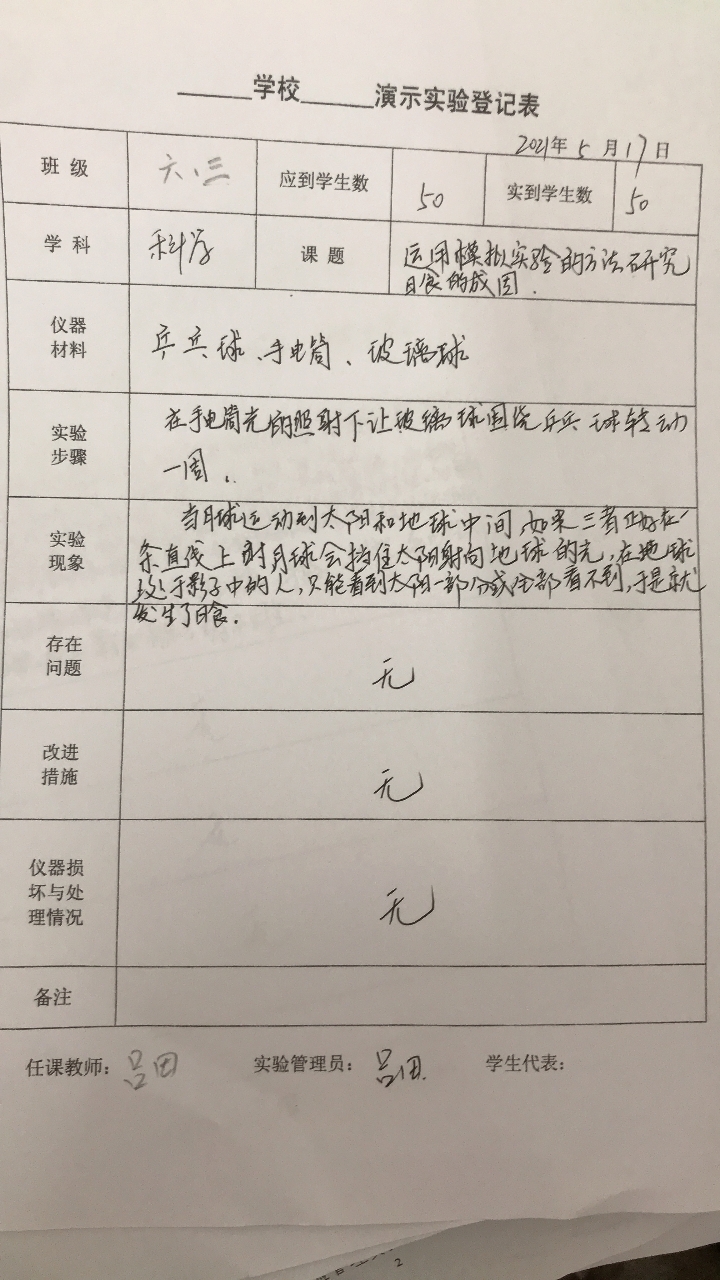 ______学校______演示实验登记表
2021年 5 月 17 日
班 级 六.三 应到学生数 50 实到学生数 50
学 科 科学 课 题 运用模拟实验的方法研究
日食的成因.
仪器
材料
乒乓球、手电筒、玻璃球
实验
步骤
在手电筒光的照射下让玻璃球围绕乒乓球转动
一周.
实验
现象
当月球运动到太阳和地球中间,如果三者正好在一
条直线上时月球会挡住太阳射向地球的光,在地球
上处于影子中的人,只能看到太阳一部分或全部看不到,于是就
发生了日食.
存在
问题
无
改进
措施
无
仪器损
坏与处
理情况
无
备注
任课教师: 吕团 实验管理员: 吕团. 学生代表:
2